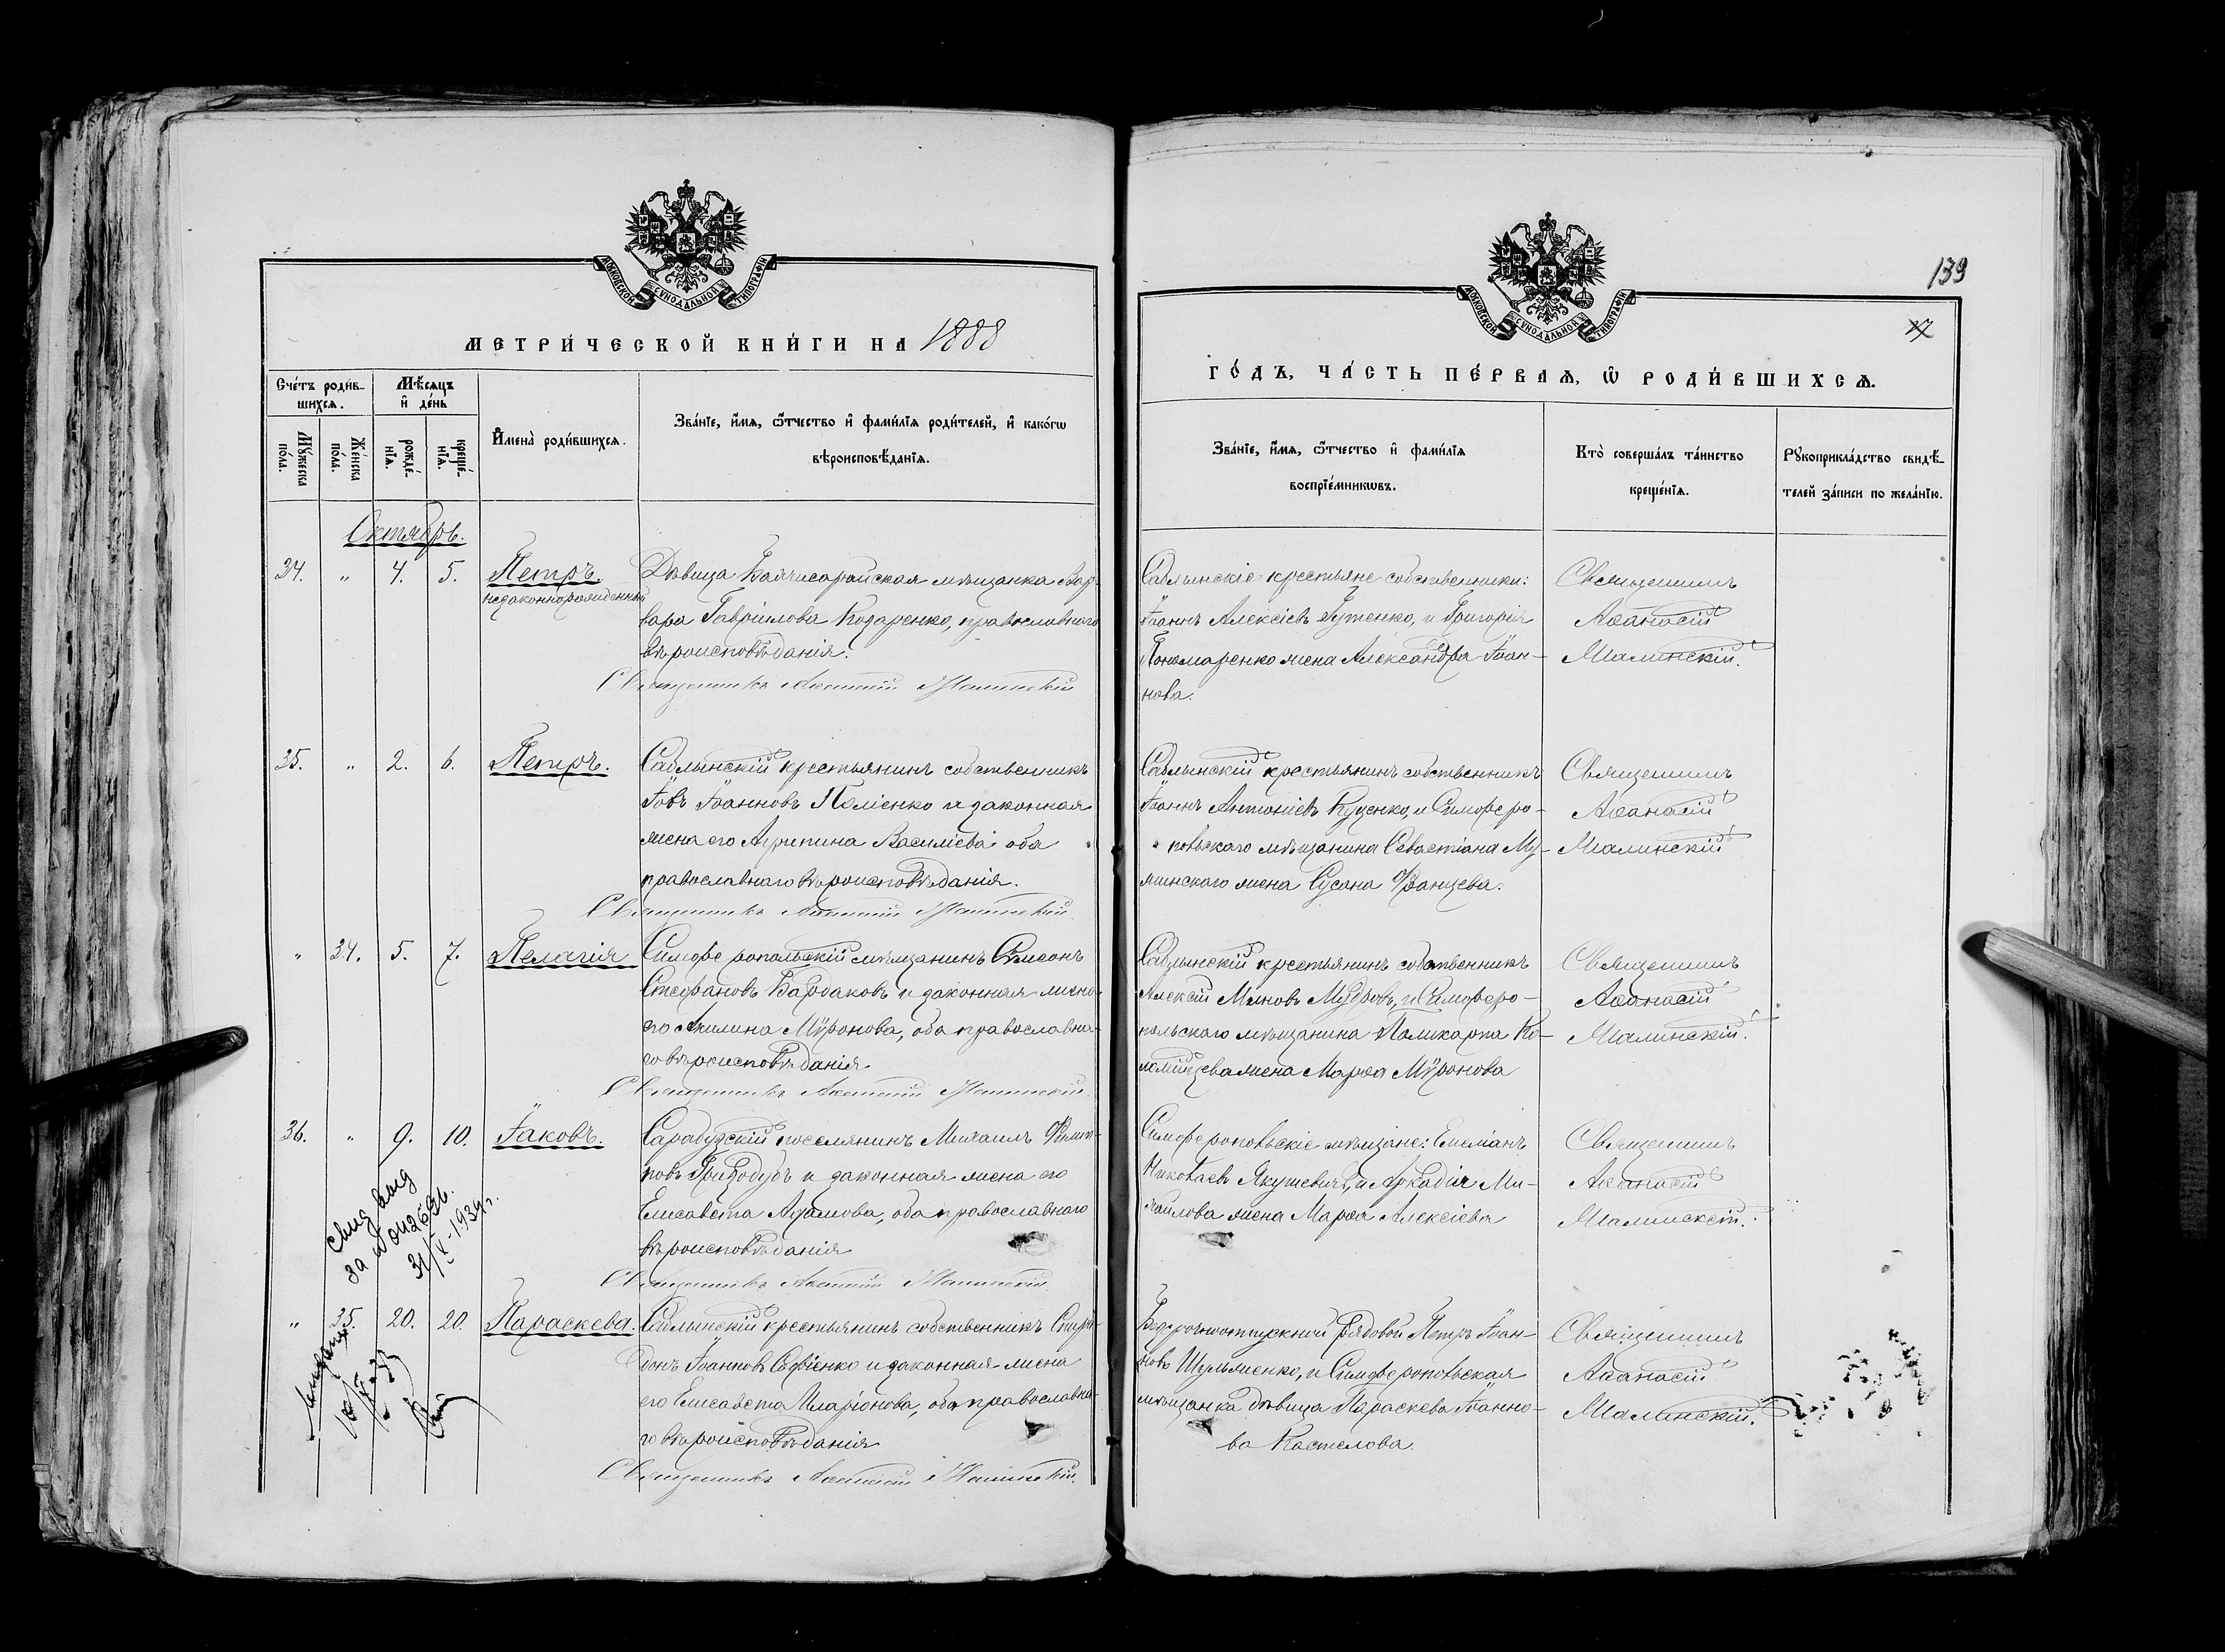 МОСКОВСКОЙ СѴНОДАЛЬНОЙ ТИПОГРАФІИ
МЕТРИ́ЧЕСКОЙ КНИ́ГИ НА 1888
Сче́тъ роди́в-
шихсѧ.
Мѣ́сѧцъ
и҆ де́нь
Мꙋ́жеска
по́ла.
Же́нска
по́ла.
рожде́-
нїѧ.
креще́-
нїѧ.
И҆мена̀ роди́вшихсѧ.
Зва́нїе, и҆́мѧ, ѻ҆́тчество и҆ фами́лїѧ роди́телей, и҆ како́гѡ
вѣроисповѣ́данїѧ.
Октябрь.
34. " 4. 5. Петръ.
незаконнорожденный
Дѣвица Бахчисарайская мѣщанка Вар-
вара Гавріилова Козаренко, православнаго
вѣроисповѣданія.
Священникъ Аѳанасій Малинскій
35. " 2. 6. Петръ.
Саблынскій крестьянинъ собственникъ
Іовъ Іоанновъ Поліенко и законная
жена его Агрипина Василіева оба
православнаго вѣроисповѣданія.
Священникъ Аѳанасій Малинскій
" 34. 5. 7. Пелагія
Симферопольскій мѣщанинъ Сѵмеонъ
Стефановъ Бардаковъ и законная жена
его Акилина Мѵронова, оба православна-
го вѣроисповѣданія
Священникъ Аѳанасій Малинскій
36. " 9. 10. Іаковъ.
Сарабузскій поселянинъ Михаилъ Филип-
повъ Гризодубъ и законная жена его
Елисавета Адамова, оба православнаго
вѣроисповѣданія
Священникъ Аѳанасій Малинскій
Свид выд
за №
31/V-1939г.
" 35. 20. 20. Параскева.
Саблынскій крестьянинъ собственникъ Спири-
донъ Іоанновъ Савіенко и законная жена
его Елисавета Иларіонова, оба православна-
го вѣроисповѣданія
Священникъ Аѳанасій Малинскій
139
МОСКОВСКОЙ СѴНОДАЛЬНОЙ ТИПОГРАФІИ
ГО́ДЪ, ЧА́СТЬ ПЕ́РВАѦ, Ѡ҆ РОДИ́ВШИХСѦ.
Зва́нїе, и҆́мѧ, ѻ҆́тчество и҆ фами́лїѧ
воспрїе́мникѡвъ.
Кто̀ соверша́лъ та́инство
креще́нїѧ.
Рꙋкоприкла́дство свидѣ́-
телей за́писи по жела́нїю.
Саблынскіе крестьяне собственники:
Іоаннъ Алексіевъ Гутенко, и Григорія
Пономаренко жена Александра Іоан-
нова.
Священникъ
Аѳанасій
Малинскій.
Саблынскій крестьянинъ собственникъ
Іоаннъ Антоніевъ Куценко, и Симферо-
польскаго мѣщанина Севастіана Му-
жинскаго жена Сусана Францева.
Священникъ
Аѳанасій
Малинскій
Саблынскій крестьянинъ собственникъ
Алексій Миновъ Мудровъ, и Симферо-
польскаго мѣщанина Поликарпа Ко-
ломійцева жена Марѳа Мѵронова
Священникъ
Аѳанасій
Малинскій.
Симферопольскіе мѣщане: Емиліанъ
Николаевъ Якушевичъ, и Аркадія Ми-
хайлова жена Марѳа Алексіева
Священникъ
Аѳанасій
Малинскій.
Безсрочноотпускный рядовой Петръ Іоан-
новъ Шульженко, и Симферопольская
мѣщанка дѣвица Параскева Іоанно-
ва Кастелова.
Священникъ
Аѳанасій
Малинскій.